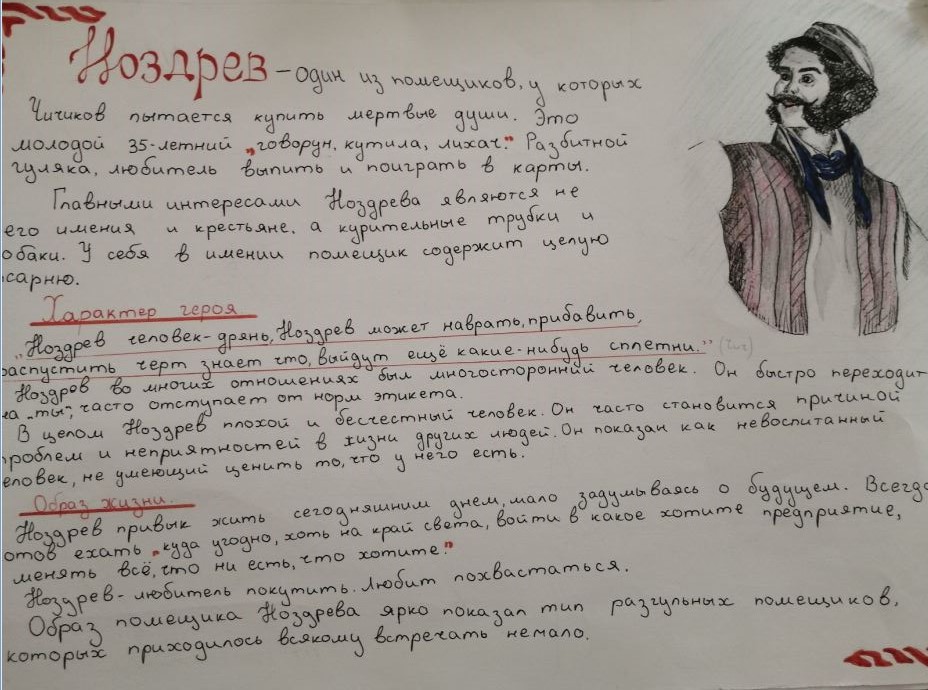 Ноздрев – один из помещиков, у которых
Чичиков пытается купить мертвые души. Это
молодой 35-летний „говорун, кутила, лихач." Разбитной
гуляка, любитель выпить и поиграть в карты.
Главными интересами Ноздрева являются не
его имения и крестьяне, а курительные трубки и
обаки. У себя в имении помещик содержит целую
сарню.
Характер героя
„Ноздрев человек-дрянь, Ноздрев может наврать, прибавить,
распустить черт знает что, выйдут ещё какие-нибудь сплетни." (Чич)
Ноздрев во многих отношениях был многосторонний человек. Он быстро переходит
на „ты", часто отступает от норм этикета.
В целом Ноздрев плохой и бесчестный человек. Он часто становится причиной
проблем и неприятностей в жизни других людей. Он показан как невоспитанный
еловек, не умеющий ценить то, что у него есть.
Образ жизни.
Ноздрев привык жить сегодняшним днем, мало задумываясь о будущем. Всегда
отов ехать „куда угодно, хоть на край света, войти в какое хотите предприятие,
менять всё, что ни есть, что хотите."
Ноздрев – любитель покутить. Любит похвастаться.
Образ помещика Ноздрева ярко показал тип разгульных помещиков,
которых приходилось всякому встречать немало.